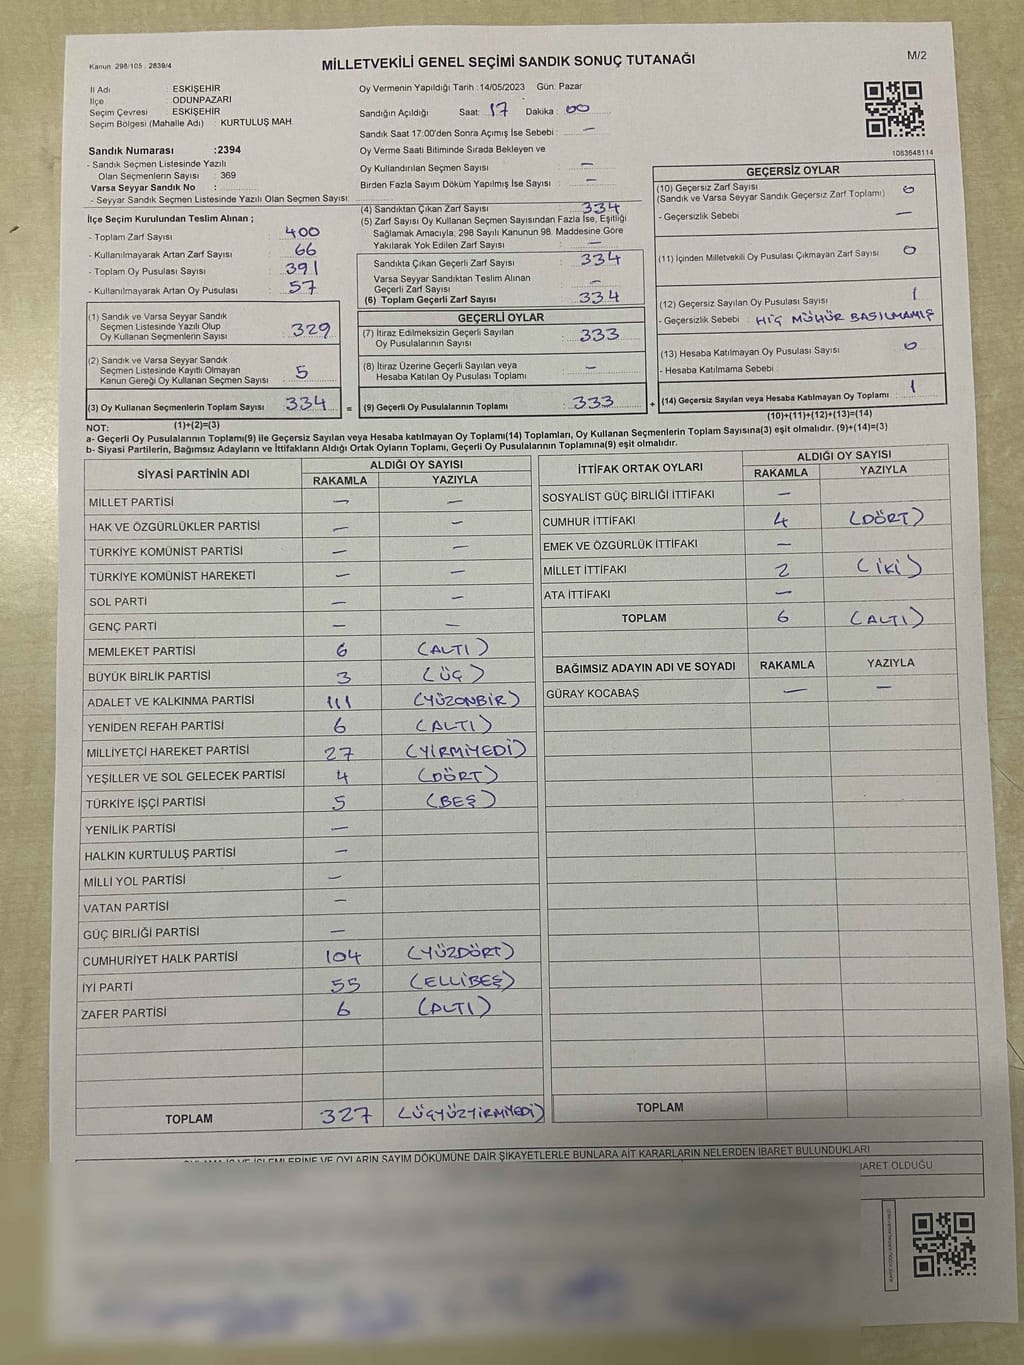 Kanun: 298/105 , 2839/4
MİLLETVEKİLİ GENEL SEÇİMİ SANDIK SONUÇ TUTANAĞI
M/2
İl Adı : ESKİŞEHİR
İlçe : ODUNPAZARI
Seçim Çevresi : ESKİŞEHİR
Seçim Bölgesi (Mahalle Adı) : KURTULUŞ MAH.
Sandık Numarası :2394
- Sandık Seçmen Listesinde Yazılı
Olan Seçmenlerin Sayısı : 369
Varsa Seyyar Sandık No :
- Seyyar Sandık Seçmen Listesinde Yazılı Olan Seçmen Sayısı:
Oy Vermenin Yapıldığı Tarih : 14/05/2023 Gün: Pazar
Sandığın Açıldığı Saat: 17 Dakika : 00
Sandık Saat 17:00'den Sonra Açımış İse Sebebi : —
Oy Verme Saati Bitiminde Sırada Bekleyen ve
Oy Kullandırılan Seçmen Sayısı : —
Birden Fazla Sayım Döküm Yapılmış İse Sayısı : —
1083648114
İlçe Seçim Kurulundan Teslim Alınan ;
- Toplam Zarf Sayısı : 400
- Kullanılmayarak Artan Zarf Sayısı : 66
- Toplam Oy Pusulası Sayısı : 391
- Kullanılmayarak Artan Oy Pusulası : 57
(1) Sandık ve Varsa Seyyar Sandık
Seçmen Listesinde Yazılı Olup
Oy Kullanan Seçmenlerin Sayısı : 329
(2) Sandık ve Varsa Seyyar Sandık
Seçmen Listesinde Kayıtlı Olmayan
Kanun Gereği Oy Kullanan Seçmen Sayısı : 5
(3) Oy Kullanan Seçmenlerin Toplam Sayısı : 334
(1)+(2)=(3)
(4) Sandıktan Çıkan Zarf Sayısı : 334
(5) Zarf Sayısı Oy Kullanan Seçmen Sayısından Fazla İse, Eşitliği
Sağlamak Amacıyla; 298 Sayılı Kanunun 98. Maddesine Göre
Yakılarak Yok Edilen Zarf Sayısı : —
Sandıkta Çıkan Geçerli Zarf Sayısı : 334
Varsa Seyyar Sandıktan Teslim Alınan
Geçerli Zarf Sayısı : —
(6) Toplam Geçerli Zarf Sayısı : 334
GEÇERLİ OYLAR
(7) İtiraz Edilmeksizin Geçerli Sayılan
Oy Pusulalarının Sayısı : 333
(8) İtiraz Üzerine Geçerli Sayılan veya
Hesaba Katılan Oy Pusulası Toplamı : —
= (9) Geçerli Oy Pusulalarının Toplamı : 333 +
GEÇERSİZ OYLAR
(10) Geçersiz Zarf Sayısı : 0
(Sandık ve Varsa Seyyar Sandık Geçersiz Zarf Toplamı)
- Geçersizlik Sebebi : —
(11) İçinden Milletvekili Oy Pusulası Çıkmayan Zarf Sayısı : 0
(12) Geçersiz Sayılan Oy Pusulası Sayısı : 1
- Geçersizlik Sebebi : HİÇ MÜHÜR BASILMAMIŞ
(13) Hesaba Katılmayan Oy Pusulası Sayısı : 0
- Hesaba Katılmama Sebebi :
(14) Geçersiz Sayılan veya Hesaba Katılmayan Oy Toplamı : 1
(10)+(11)+(12)+(13)=(14)
NOT:
a- Geçerli Oy Pusulalarının Toplamı(9) ile Geçersiz Sayılan veya Hesaba katılmayan Oy Toplamı(14) Toplamları, Oy Kullanan Seçmenlerin Toplam Sayısına(3) eşit olmalıdır. (9)+(14)=(3)
b- Siyasi Partilerin, Bağımsız Adayların ve İttifakların Aldığı Ortak Oyların Toplamı, Geçerli Oy Pusulalarının Toplamına(9) eşit olmalıdır.
SİYASİ PARTİNİN ADI ALDIĞI OY SAYISI
RAKAMLA YAZIYLA
MİLLET PARTİSİ — —
HAK VE ÖZGÜRLÜKLER PARTİSİ — —
TÜRKİYE KOMÜNİST PARTİSİ — —
TÜRKİYE KOMÜNİST HAREKETİ — —
SOL PARTİ — —
GENÇ PARTİ — —
MEMLEKET PARTİSİ 6 (ALTI)
BÜYÜK BİRLİK PARTİSİ 3 (ÜÇ)
ADALET VE KALKINMA PARTİSİ 111 (YÜZONBİR)
YENİDEN REFAH PARTİSİ 6 (ALTI)
MİLLİYETÇİ HAREKET PARTİSİ 27 (YİRMİYEDİ)
YEŞİLLER VE SOL GELECEK PARTİSİ 4 (DÖRT)
TÜRKİYE İŞÇİ PARTİSİ 5 (BEŞ)
YENİLİK PARTİSİ —
HALKIN KURTULUŞ PARTİSİ —
MİLLİ YOL PARTİSİ —
VATAN PARTİSİ —
GÜÇ BİRLİĞİ PARTİSİ —
CUMHURİYET HALK PARTİSİ 104 (YÜZDÖRT)
İYİ PARTİ 55 (ELLİBEŞ)
ZAFER PARTİSİ 6 (ALTI)
TOPLAM 327 (ÜÇYÜZYİRMİYEDİ)
İTTİFAK ORTAK OYLARI ALDIĞI OY SAYISI
RAKAMLA YAZIYLA
SOSYALİST GÜÇ BİRLİĞİ İTTİFAKI —
CUMHUR İTTİFAKI 4 (DÖRT)
EMEK VE ÖZGÜRLÜK İTTİFAKI —
MİLLET İTTİFAKI 2 (İKİ)
ATA İTTİFAKI —
TOPLAM 6 (ALTI)
BAĞIMSIZ ADAYIN ADI VE SOYADI RAKAMLA YAZIYLA
GÜRAY KOCABAŞ — —
TOPLAM
İŞLEMLERİNE VE OYLARIN SAYIM DÖKÜMÜNE DAİR ŞİKAYETLERLE BUNLARA AİT KARARLARIN NELERDEN İBARET BULUNDUKLARI
İBARET OLDUĞU